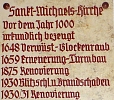 Sankt-Michaels-Kirche
Vor dem Jahr 1000
urkundlich bezeugt
1648 Verwüst.-Glockenraub
1659 Erneuerung-Turmbau
1875 Renovierung
1930 Blitzschl.u.Brandschaden
1930/31 Renovierung